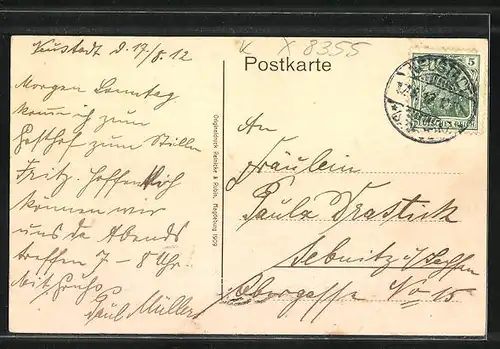 Neustadt d. 17/8. 12
Morgen Sonntag
komme ich zum
Gasthof zum Stillen
Fritz. Hoffentlich
können wir
uns da Abends
treffen 7 - 8 Uhr.
Mit Gruß
Paul Müller
Originaldruck Reinicke & Rubin, Magdeburg 1909
X 8355
Postkarte
NEUSTADT
5
An
Fräulein
Paula Drastick
Sebnitz i/Sachsen
Obergasse No 15